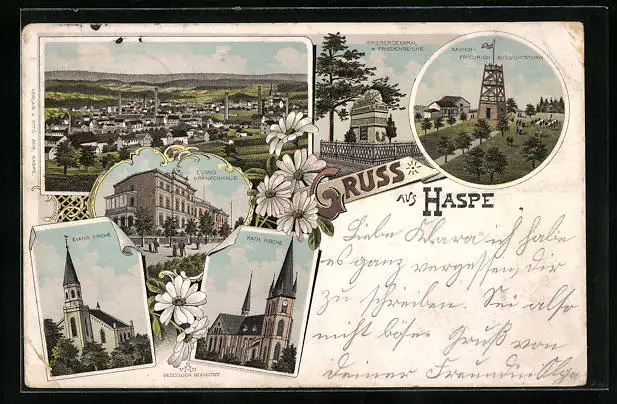 KRIEGERDENKMAL
u. FRIEDENSEICHE
KAISER-
FRIEDRICH-AUSSICHTSTURM
VERLAG V. OTTO HASPE
EVANG.
KRANKENHAUS
GRUSS
AUS HASPE
EVANG. KIRCHE
KATH. KIRCHE
GESETZLICH GESCHÜTZT
Liebe Klara ich habe
es ganz vergessen, dir
zu schreiben. Sei also
nicht böse. Gruß von
deiner Freundin Olga